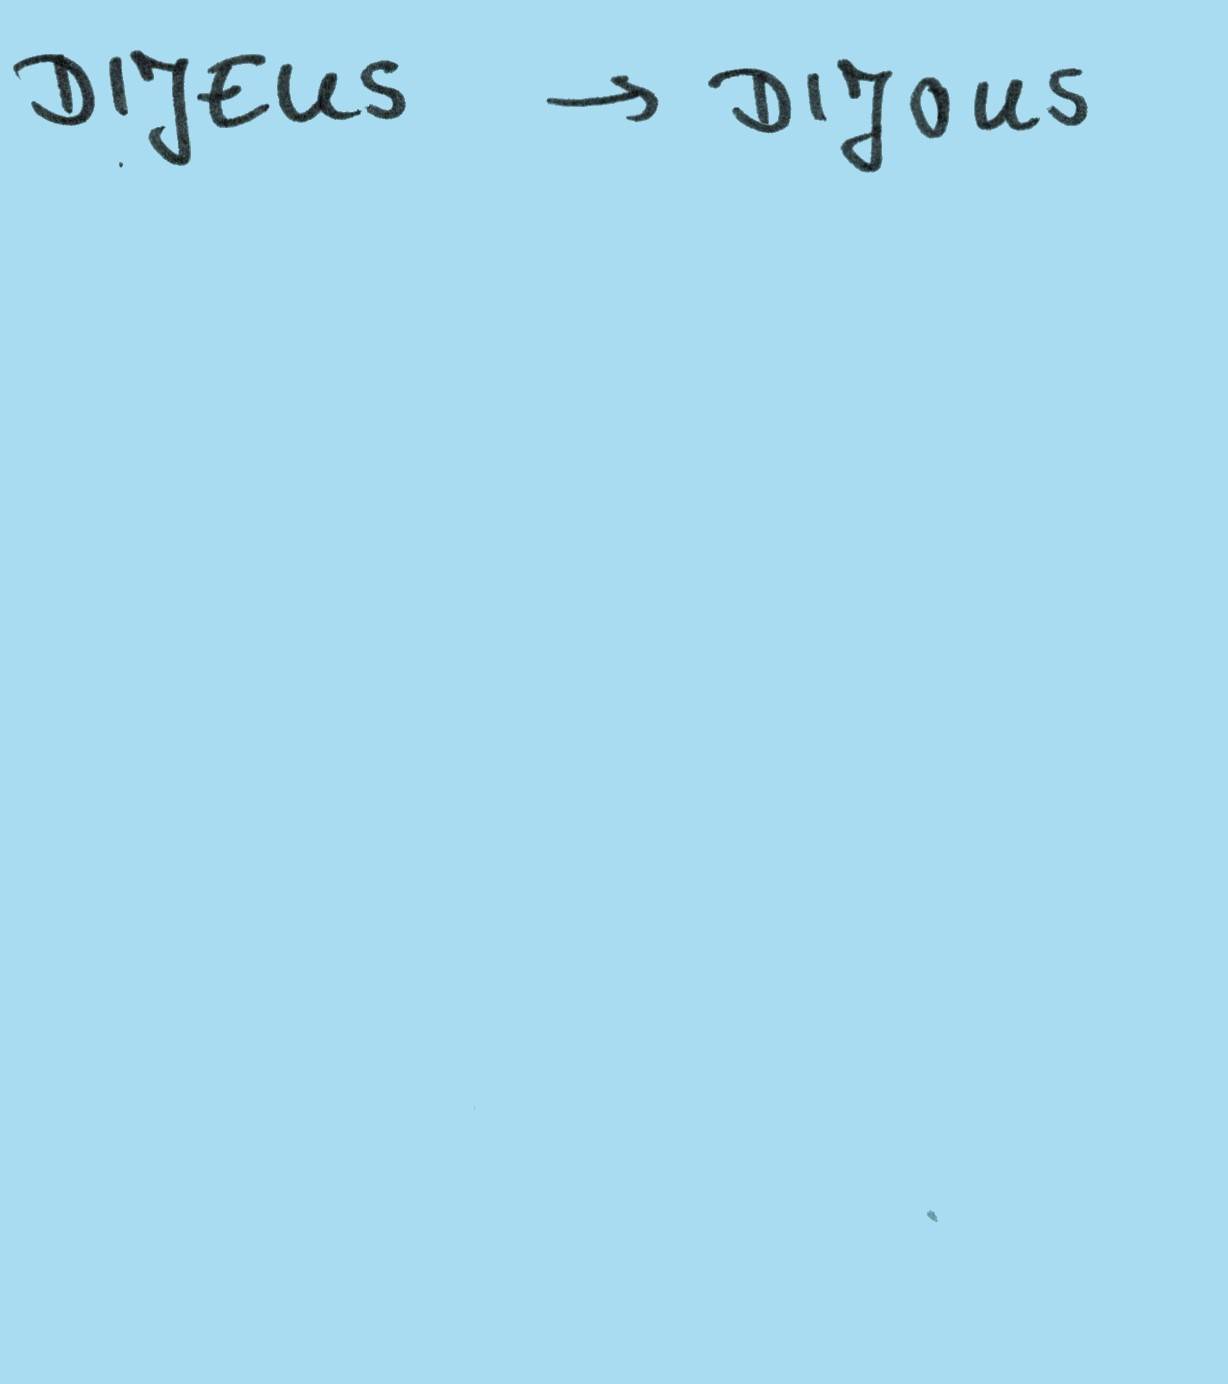 DIJEUS → DIJOUS